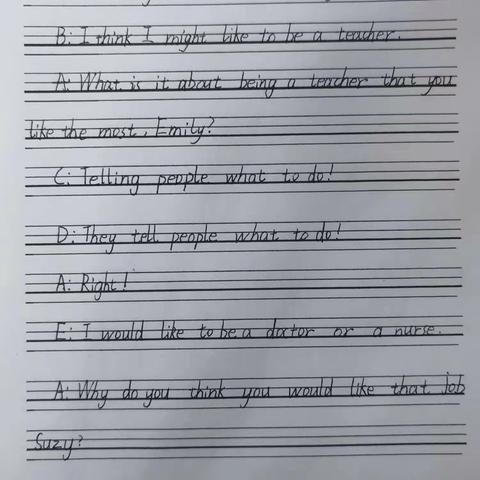 B: I think I might like to be a teacher.
A: What is it about being a teacher that you
like the most, Emily?
C: Telling people what to do!
D: They tell people what to do!
A: Right!
E: I would like to be a doctor or a nurse.
A: Why do you think you would like that job
Suzy?